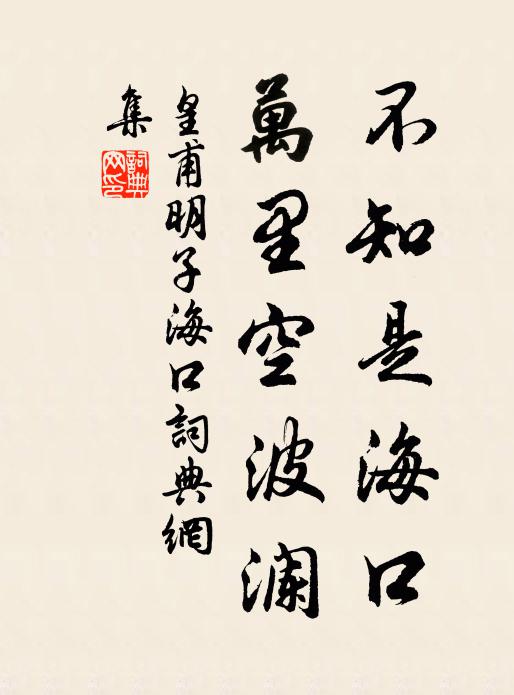 不知是海口
萬里空波瀾
皇甫明子海口詞典網
集
詞典網印